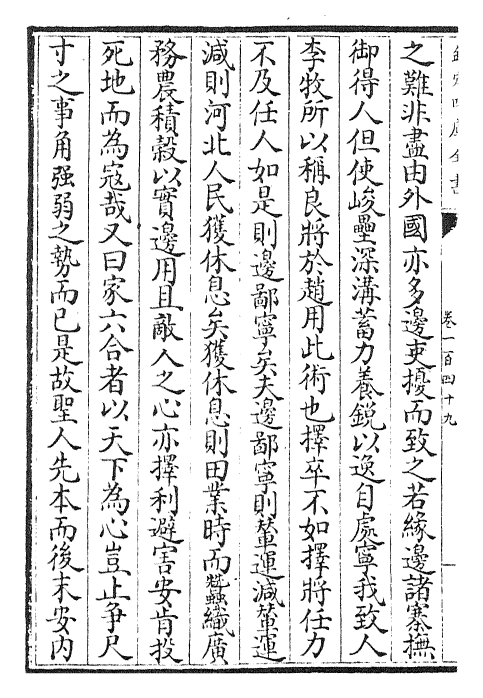 欽定四庫全書
卷一百四十九
之難非盡由外國亦多邊吏擾而致之若緣邊諸寨撫
御得人但使峻壘深溝蓄力養銳以逸自處寧我致人
李牧所以稱良將於趙用此術也擇卒不如擇將任力
不及任人如是則邊鄙寧矣夫邊鄙寧則輦運減輦運
減則河北人民獲休息矣獲休息則田業時而蠶織廣
務農積穀以實邊用且敵人之心亦擇利避害安肯投
死地而為寇哉又曰家六合者以天下為心豈止爭尺
寸之事角强弱之勢而已是故聖人先本而後末安內